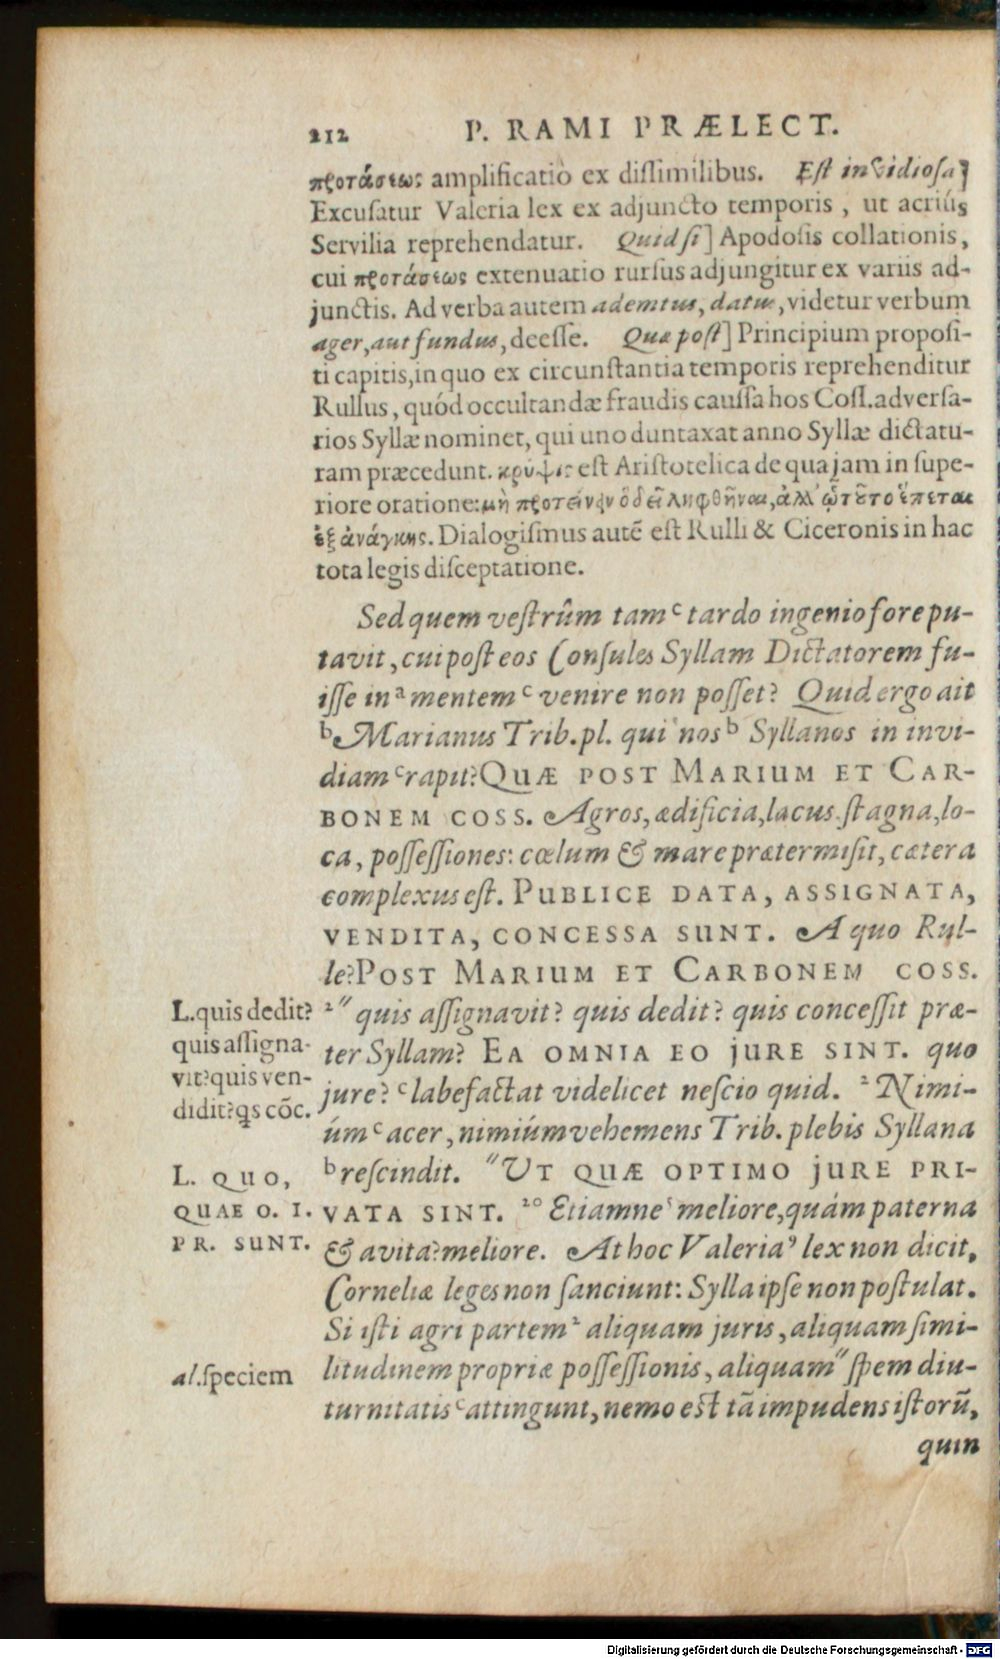 212 P. RAMI PRÆLECT.
προτάσεως amplificatio ex dissimilibus. Est invidiosa]
Excusatur Valeria lex ex adjuncto temporis, ut acriús
Servilia reprehendatur. Quid si] Apodosis collationis,
cui προτάσεως extenuatio rursus adjungitur ex variis ad-
junctis. Ad verba autem ademtus, datus, videtur verbum
ager, aut fundus, deesse. Quæ post] Principium proposi-
ti capitis, in quo ex circunstantia temporis reprehenditur
Rullus, quód occultandæ fraudis caussa hos Coss. adversa-
rios Syllæ nominet, qui uno duntaxat anno Syllæ dictatu-
ram præcedunt. κρύψις est Aristotelica de qua jam in supe-
riore oratione: μὴ προτείνην ὃ δεῖ ληφθῆναι, ἀλλ' ᾧ τοῦτο ἕπεται
ἐξ ἀνάγκης. Dialogismus autē est Rulli & Ciceronis in hac
tota legis disceptatione.
Sed quem vestrûm tam ᶜ tardo ingenio fore pu-
tavit, cui post eos Consules Syllam Dictatorem fu-
isse in ᵃ mentem ᶜ venire non posset? Quid ergo ait
ᵇ Marianus Trib. pl. qui nos ᵇ Syllanos in invi-
diam ᶜ rapit? QUÆ POST MARIUM ET CAR-
BONEM COSS. Agros, ædificia, lacus, stagna, lo-
ca, possessiones: cœlum & mare prætermisit, cætera
complexus est. PUBLICE DATA, ASSIGNATA,
VENDITA, CONCESSA SUNT. A quo Rul-
le? POST MARIUM ET CARBONEM COSS.
L. quis dedit?
quis assigna-
vit? quis ven-
didit? qs cōc.
² " quis assignavit? quis dedit? quis concessit præ-
ter Syllam? EA OMNIA EO JURE SINT. quo
jure? ᶜ labefactat videlicet nescio quid. ² Nimi-
úm ᶜ acer, nimiúm vehemens Trib. plebis Syllana
L. QUO,
QUAE O. I.
PR. SUNT.
ᵇ rescindit. " UT QUÆ OPTIMO JURE PRI-
VATA SINT. ²⁰ Etiamne ˢ meliore, quám paterna
& avita? meliore. At hoc Valeria ⁹ lex non dicit,
Corneliæ leges non sanciunt: Sylla ipse non postulat.
Si isti agri partem ² aliquam juris, aliquam simi-
al. speciem
litudinem propriæ possessionis, aliquam " spem diu-
turnitatis ᶜ attingunt, nemo est tā impudens istorū,
quin
Digitalisierung gefördert durch die Deutsche Forschungsgemeinschaft - DFG